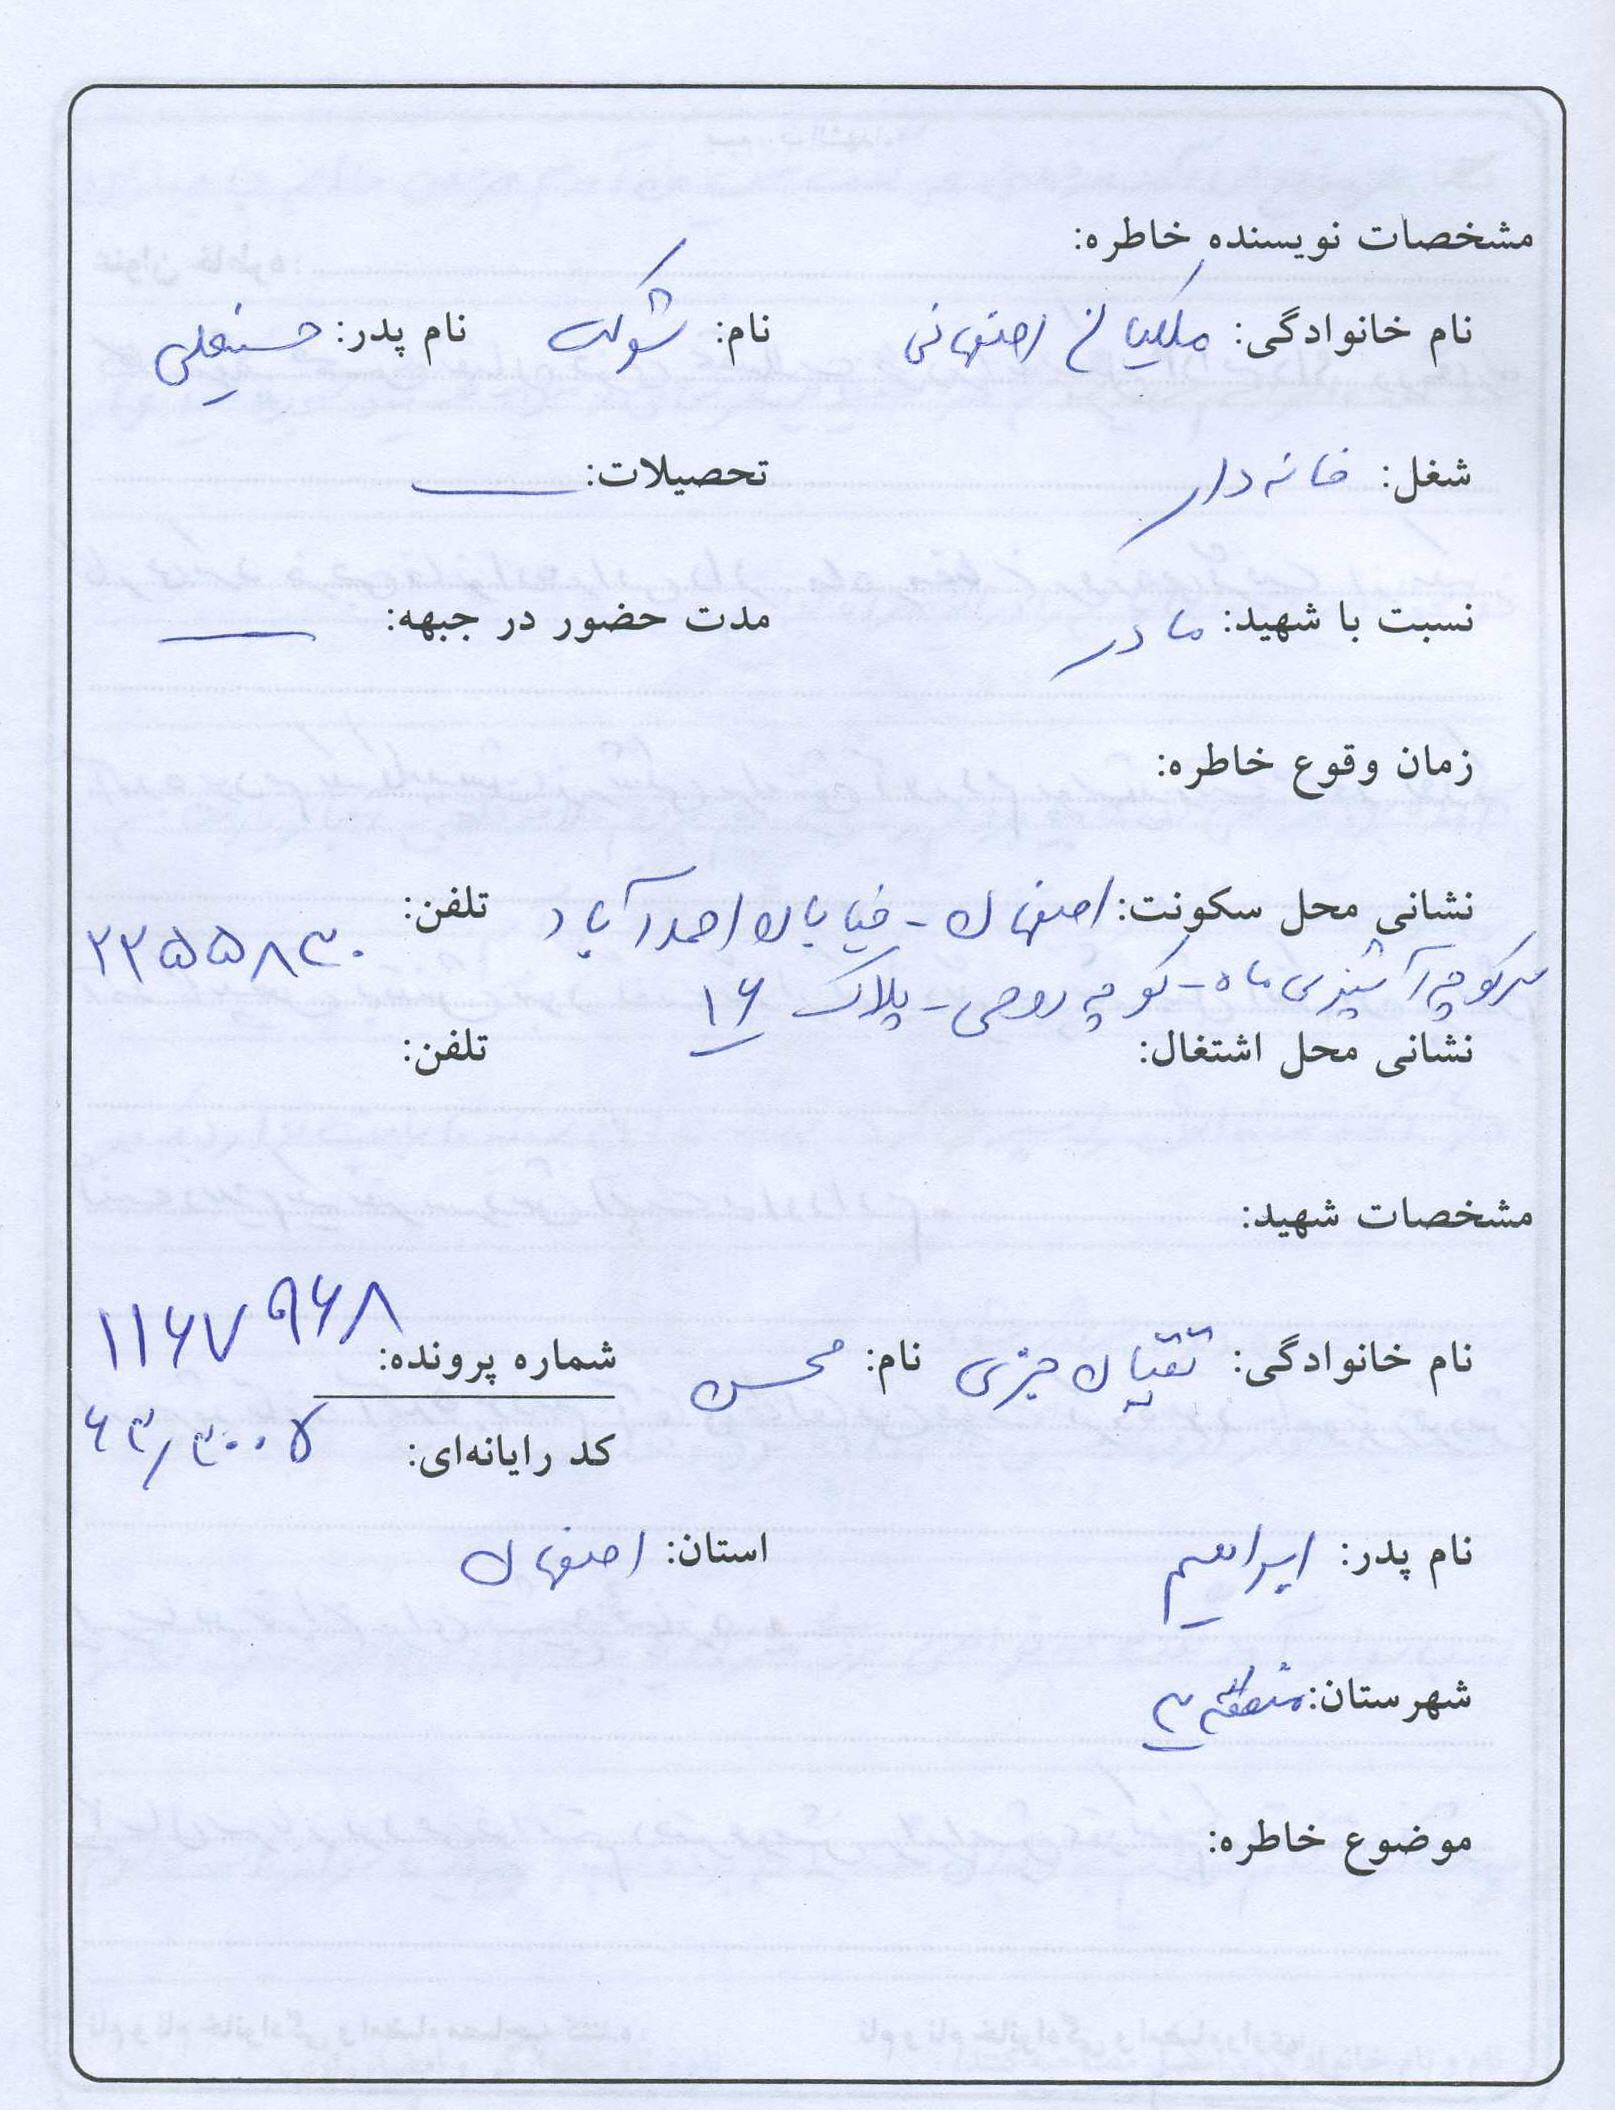 مشخصات نویسنده خاطره:
نام خانوادگی: ملکیان اصفهانی نام: شوکت نام پدر: حسینعلی
شغل: خانه دار تحصیلات: ــ
نسبت با شهید: مادر مدت حضور در جبهه: ــ
زمان وقوع خاطره:
نشانی محل سکونت: اصفهان - خیابان احمدآباد تلفن: ۲۳۵۵۸۳۰
سرکوچه آشپزی ماه - کوچه روحی - پلاک ۱۶
نشانی محل اشتغال: تلفن:
مشخصات شهید:
نام خانوادگی: تقیان جزی نام: محسن شماره پرونده: ۱۱۶۷۹۶۸
کد رایانه‌ای: ۶۳/۳۰۰۷
نام پدر: ابراهیم استان: اصفهان
شهرستان: منطقه ۳
موضوع خاطره: